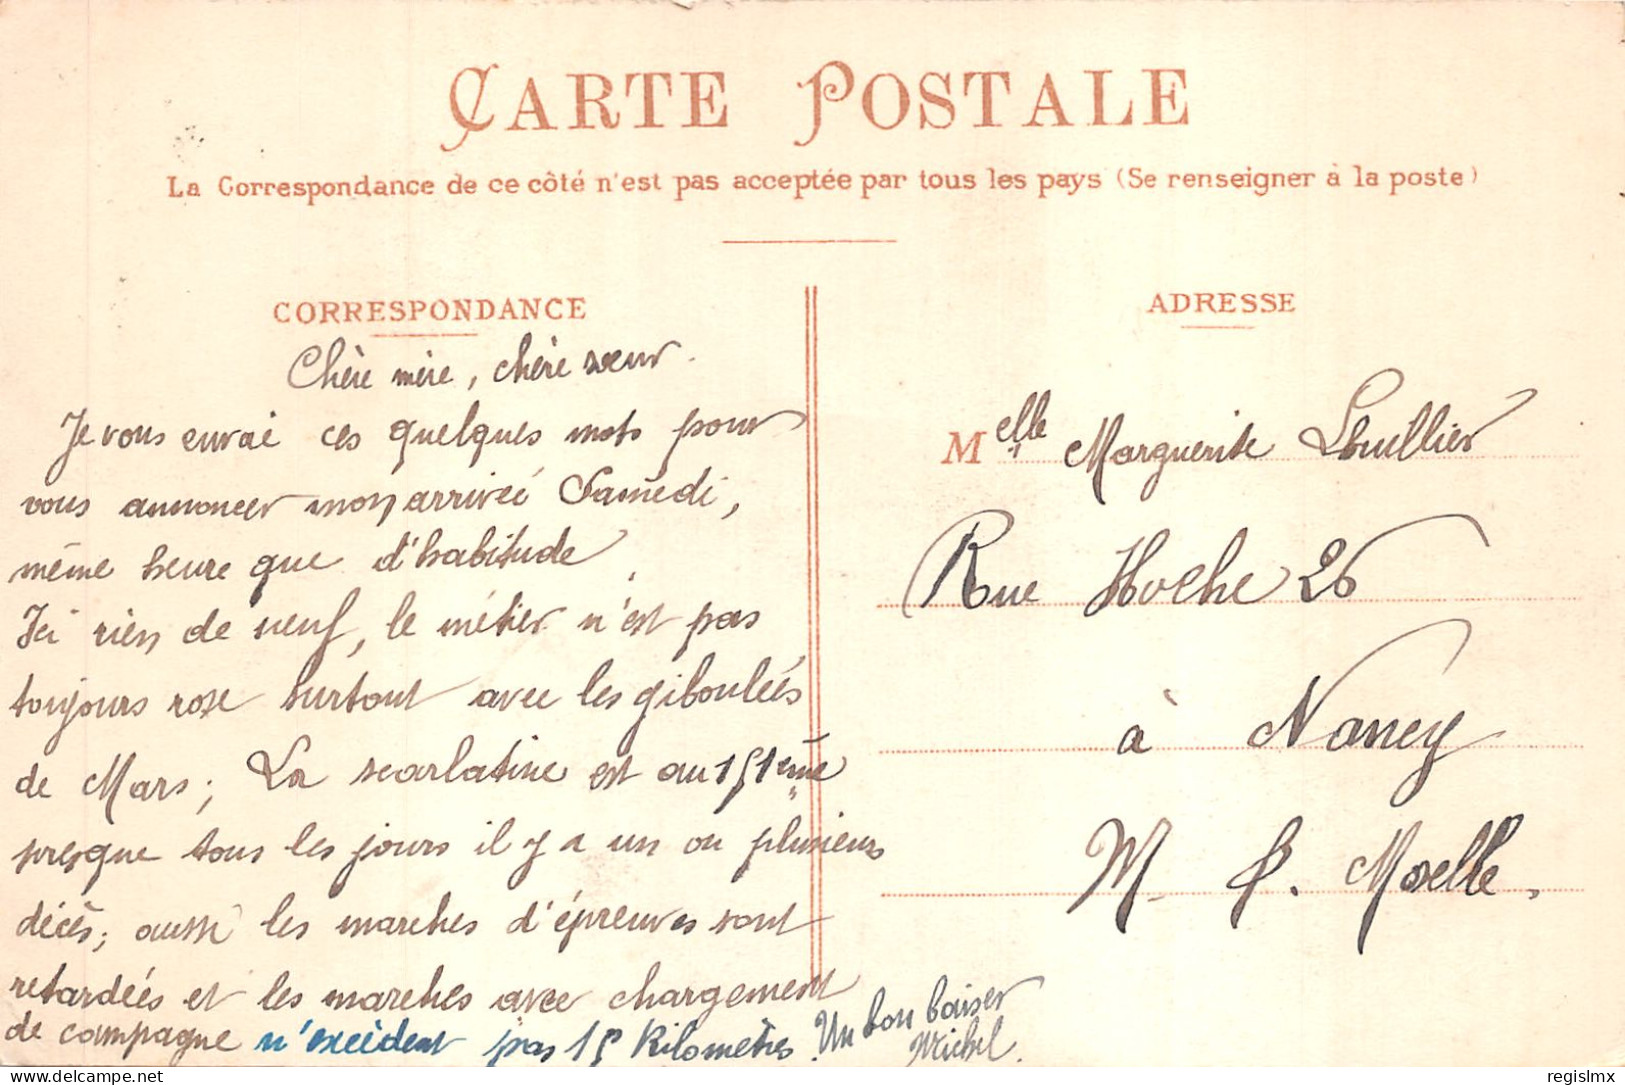 CARTE POSTALE
La Correspondance de ce côté n'est pas acceptée par tous les pays (Se renseigner à la poste)
CORRESPONDANCE
Chère mère, chère sœur.
Je vous envai ces quelques mots pour
vous annoncer mon arrivée Samedi,
même heure que d'habitude.
Ici rien de neuf, le métier n'est pas
toujours rose surtout avec les giboulées
de Mars; La scarlatine est au 151ème
presque tous les jours il y a un ou plusieurs
décès; aussi les marches d'épreuves sont
retardées et les marches avec chargement
de campagne n'excèdent pas 15 Kilomètres.
Un bon baiser
Michel.
ADRESSE
Melle Marguerite Lhuillier
Rue Hoche 26
à Nancy
M. & Moselle.
delcampe.net
regislmx